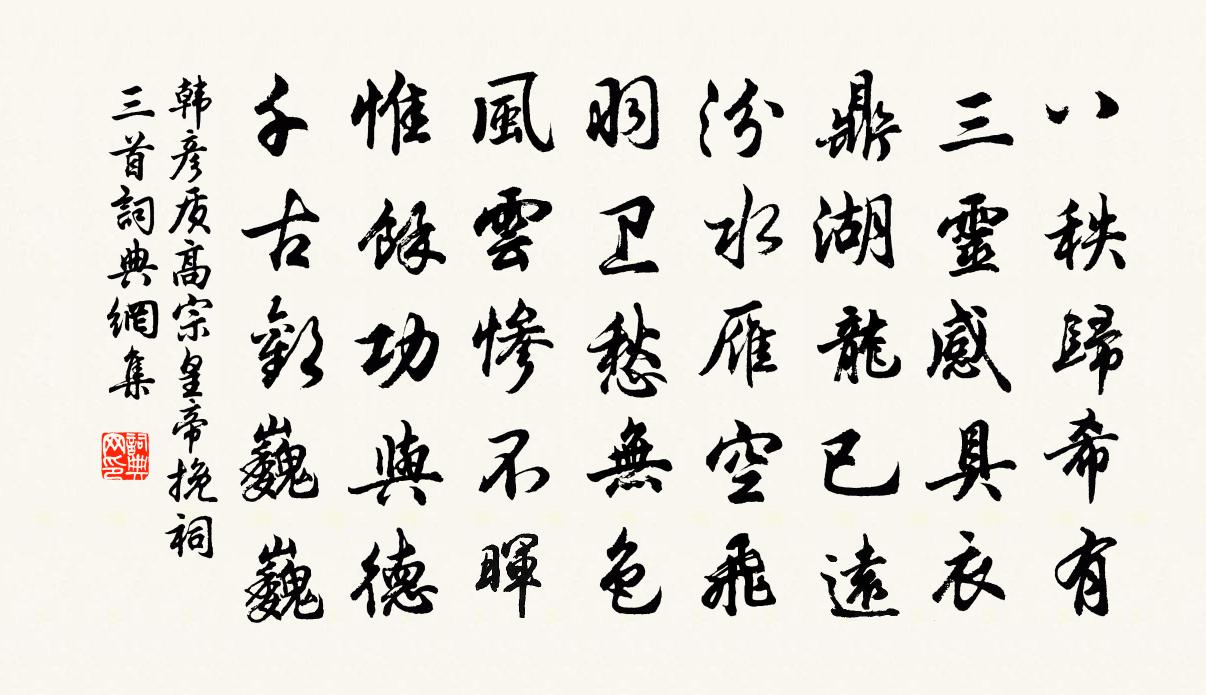 八秩歸希有
三靈感具衣
鼎湖龍已遠
汾水雁空飛
羽卫愁無色
風雲慘不暉
惟餘功與德
千古巍巍
韩彦质高宗皇帝挽祠
三首詞典網集
詞典
网印